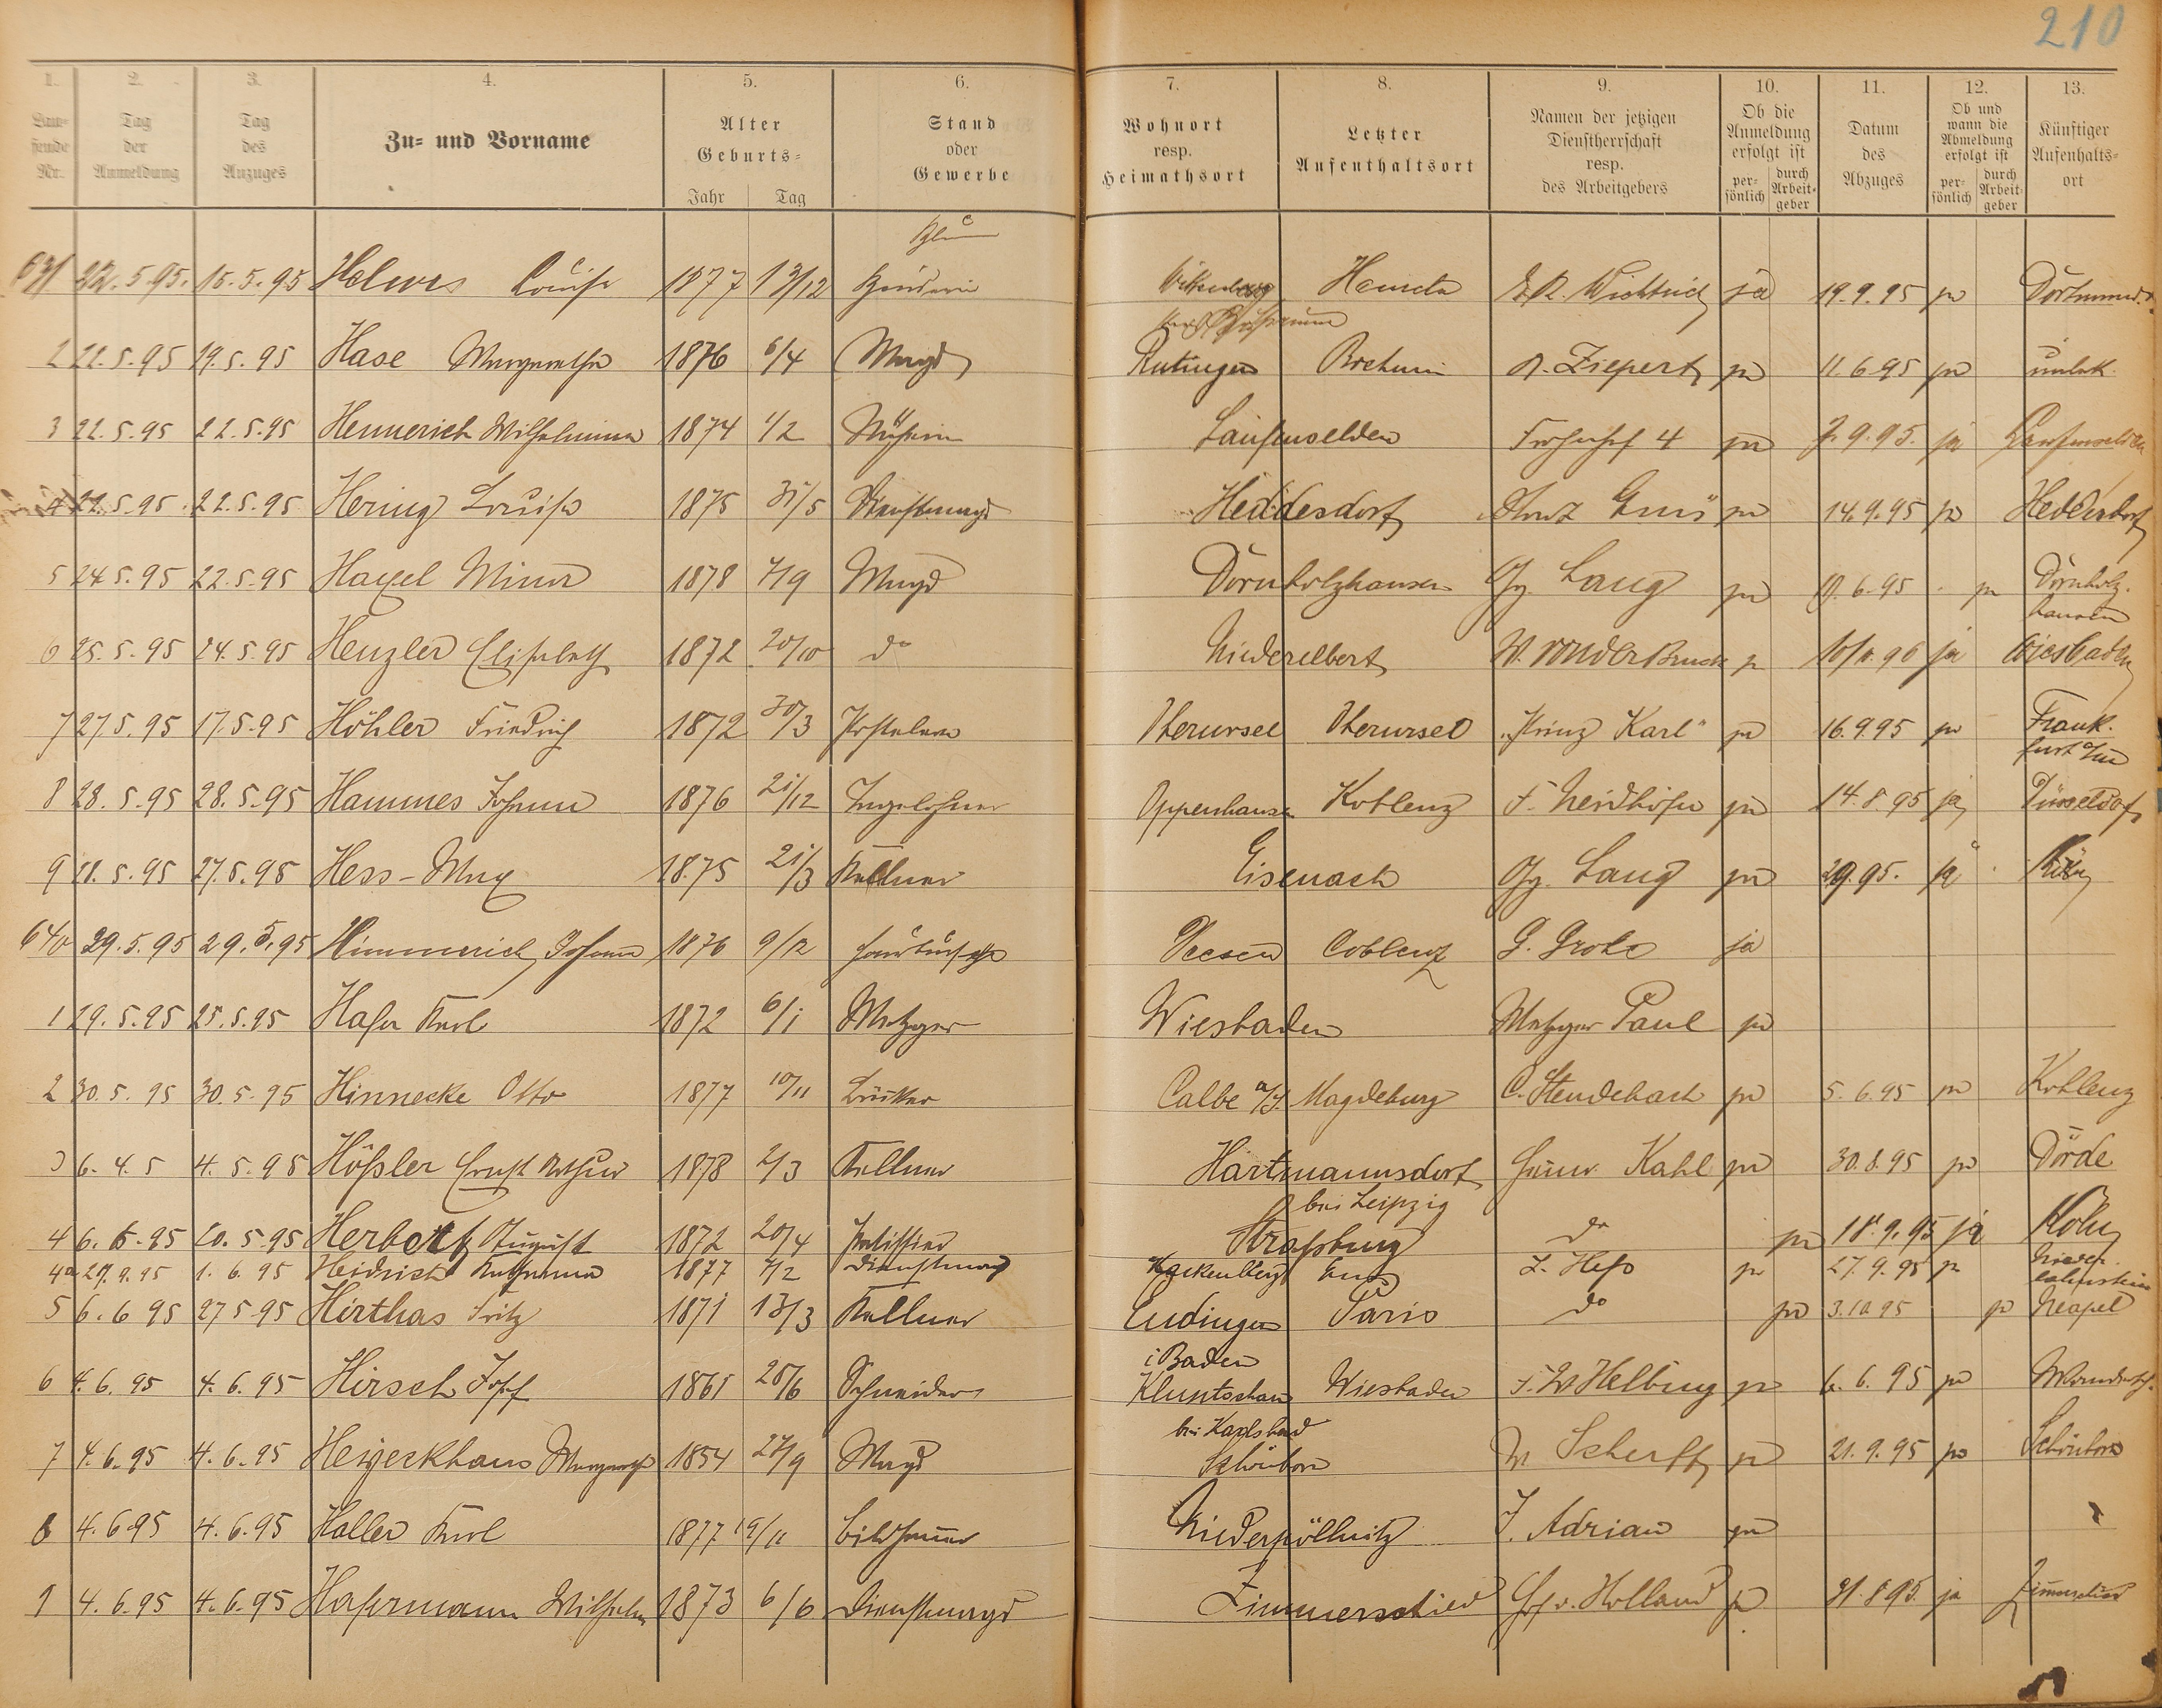 210
1. 2. 3. 4. 5. 6. 7. 8. 9. 10. 11. 12. 13.
Laufende Nr. Tag der Anmeldung Tag des Anzuges Zu- und Vorname Alter Geburts- Jahr Tag Stand oder Gewerbe Wohnort resp. Heimathsort Letzter Aufenthaltsort Namen der jetzigen Dienstherrschaft resp. des Arbeitgebers Ob die Anmeldung erfolgt ist persönlich durch Arbeitgeber Datum des Abzuges Ob und wann die Abmeldung erfolgt ist persönlich durch Arbeitgeber Künftiger Aufenthaltsort
631 22.5.95. 15.5.95 Helwes Louise 1877 13/12 ja 19.9.95 ja Dortmund
2 22.5.95 19.5.95 Hase Margarethe 1876 6/4 Magd A. Ziepert ja 11.6.95 ja unbek.
3 22.5.95 22.5.95 Hennerich Wilhelmine 1874 1/2 Näherin Laufenselden 4 ja 7.9.95. ja Laufenselden
4 22.5.95 22.5.95 Hering Louise 1875 31/5 Dienstmagd Heddesdorf ja 14.9.95 ja Heddesdorf
5 24.5.95 22.5.95 Hagel Mina 1878 7/9 Magd Dornholzhausen Gg. Lang ja 6.95 ja Dornholz-
hausen
6 25.5.95 24.5.95 Henzler Elisabeth 1872 20/10 do Niederelbert W. von der Bruck ja ja Wiesbaden
7 27.5.95 17.5.95 Höhler Friedrich 1872 30/3 Oberursel Oberursel „Prinz Karl" ja 16.9.95 ja Frank-
furt a/M
8 28.5.95 28.5.95 Hammes Johann 1876 21/12 Tagelöhner Oppenhausen Koblenz F. Neidhöfer ja 14.8.95 ja Düsseldorf
9 28.5.95 27.5.95 Hess - Max 1875 21/3 Kellner Eisenach Gg. Lang ja 29.95. ja
640 29.5.95 29.5.95 Himmerich Johann 1876 9/12 Hausbursche Coblenz G. Grote ja
1 29.5.95 25.5.95 Hafer Karl 1872 6/1 Metzger Wiesbaden Metzger Paul ja
2 30.5.95 30.5.95 Hinnecke Otto 1877 10/11 Bäcker Calbe a/S. Magdeburg C. Stendebach ja 5.6.95 ja Koblenz
3 6.4.5 4.5.95 Hößler Ernst Arthur 1878 2/3 Kellner Hartmannsdorf Kahl ja 30.8.95 ja
bei Leipzig
4 6.6.95 20.5.95 Herbert August 1872 20/4 Patissier Straßburg do ja 18.9.95 ja Köln
4a 27.9.95 1.6.95 Heidrich Katharina 1877 7/2 Dienstmagd Ems L. Heß ja 27.9.95 ja Nieder-
lahnstein
5 6.6.95 27.5.95 Hirthas Fritz 1871 13/3 Kellner Endingen Paris do ja 3.10.95 ja Neapel
i Baden
6 4.6.95 4.6.95 Hirsch Josef Schneider Wiesbaden F. W. Helbing ja 6.6.95 ja
bei Karlsbad
7 4.6.95 4.6.95 1854 27/9 Magd Schönborn W. Scherff ja 21.9.95 ja Schönborn
8 4.6.95 4.6.95 Haller Karl 1877 19/11 Bildhauer Niederpöllnitz J. Adrian ja
9 4.6.95 4.6.95 Hafermann 1873 6/6 Dienstmagd Zimmerschied Holland ja 31.8.95. ja Zimmerschied